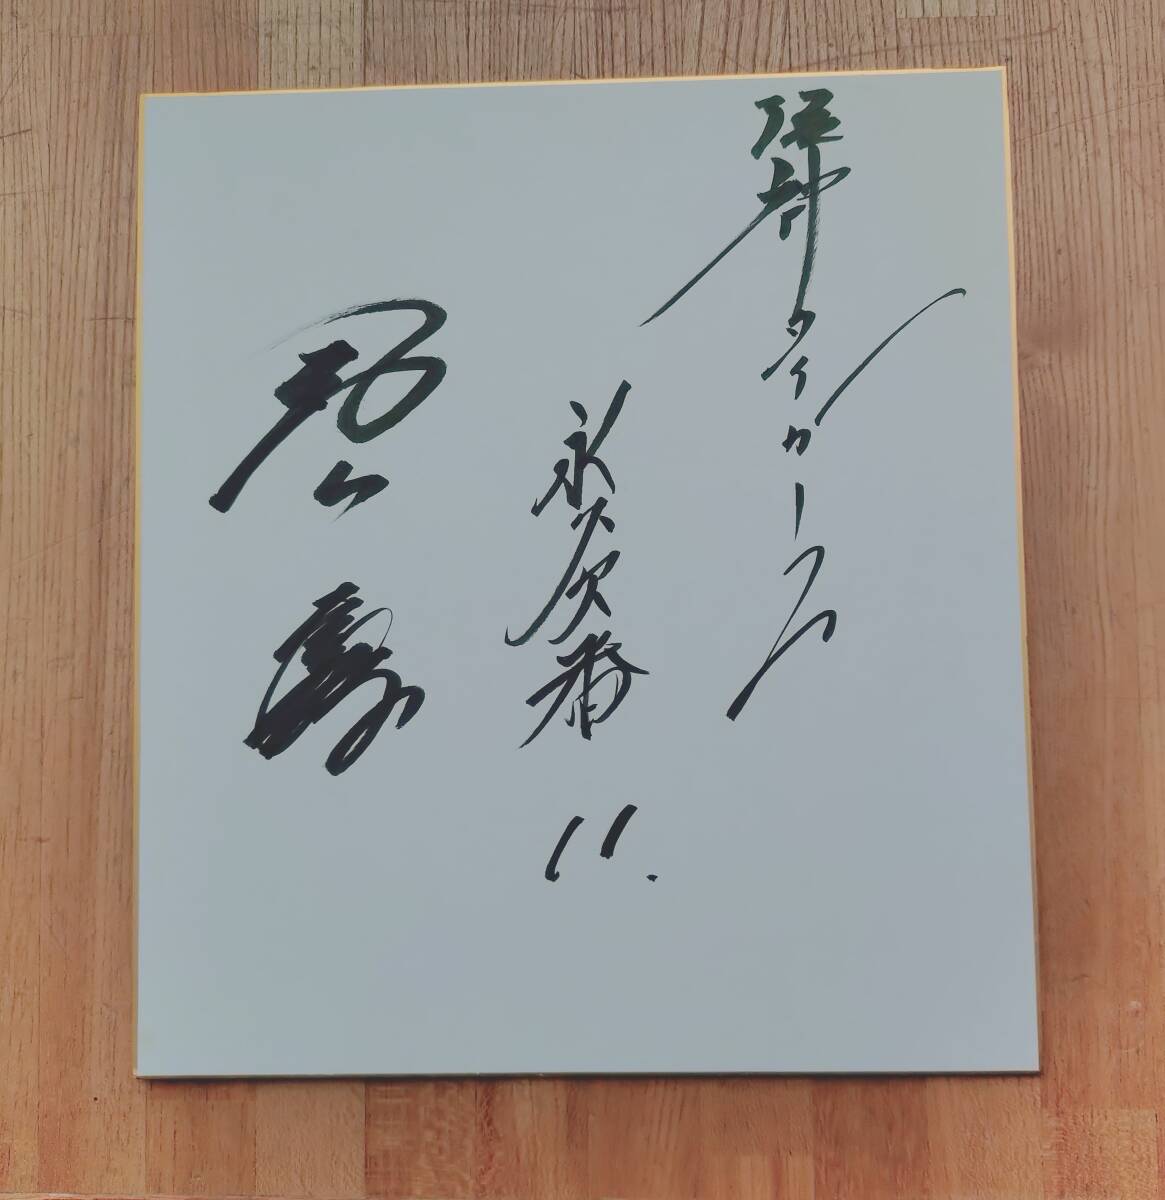 阪神タイガース
永久欠番
11.
村山実